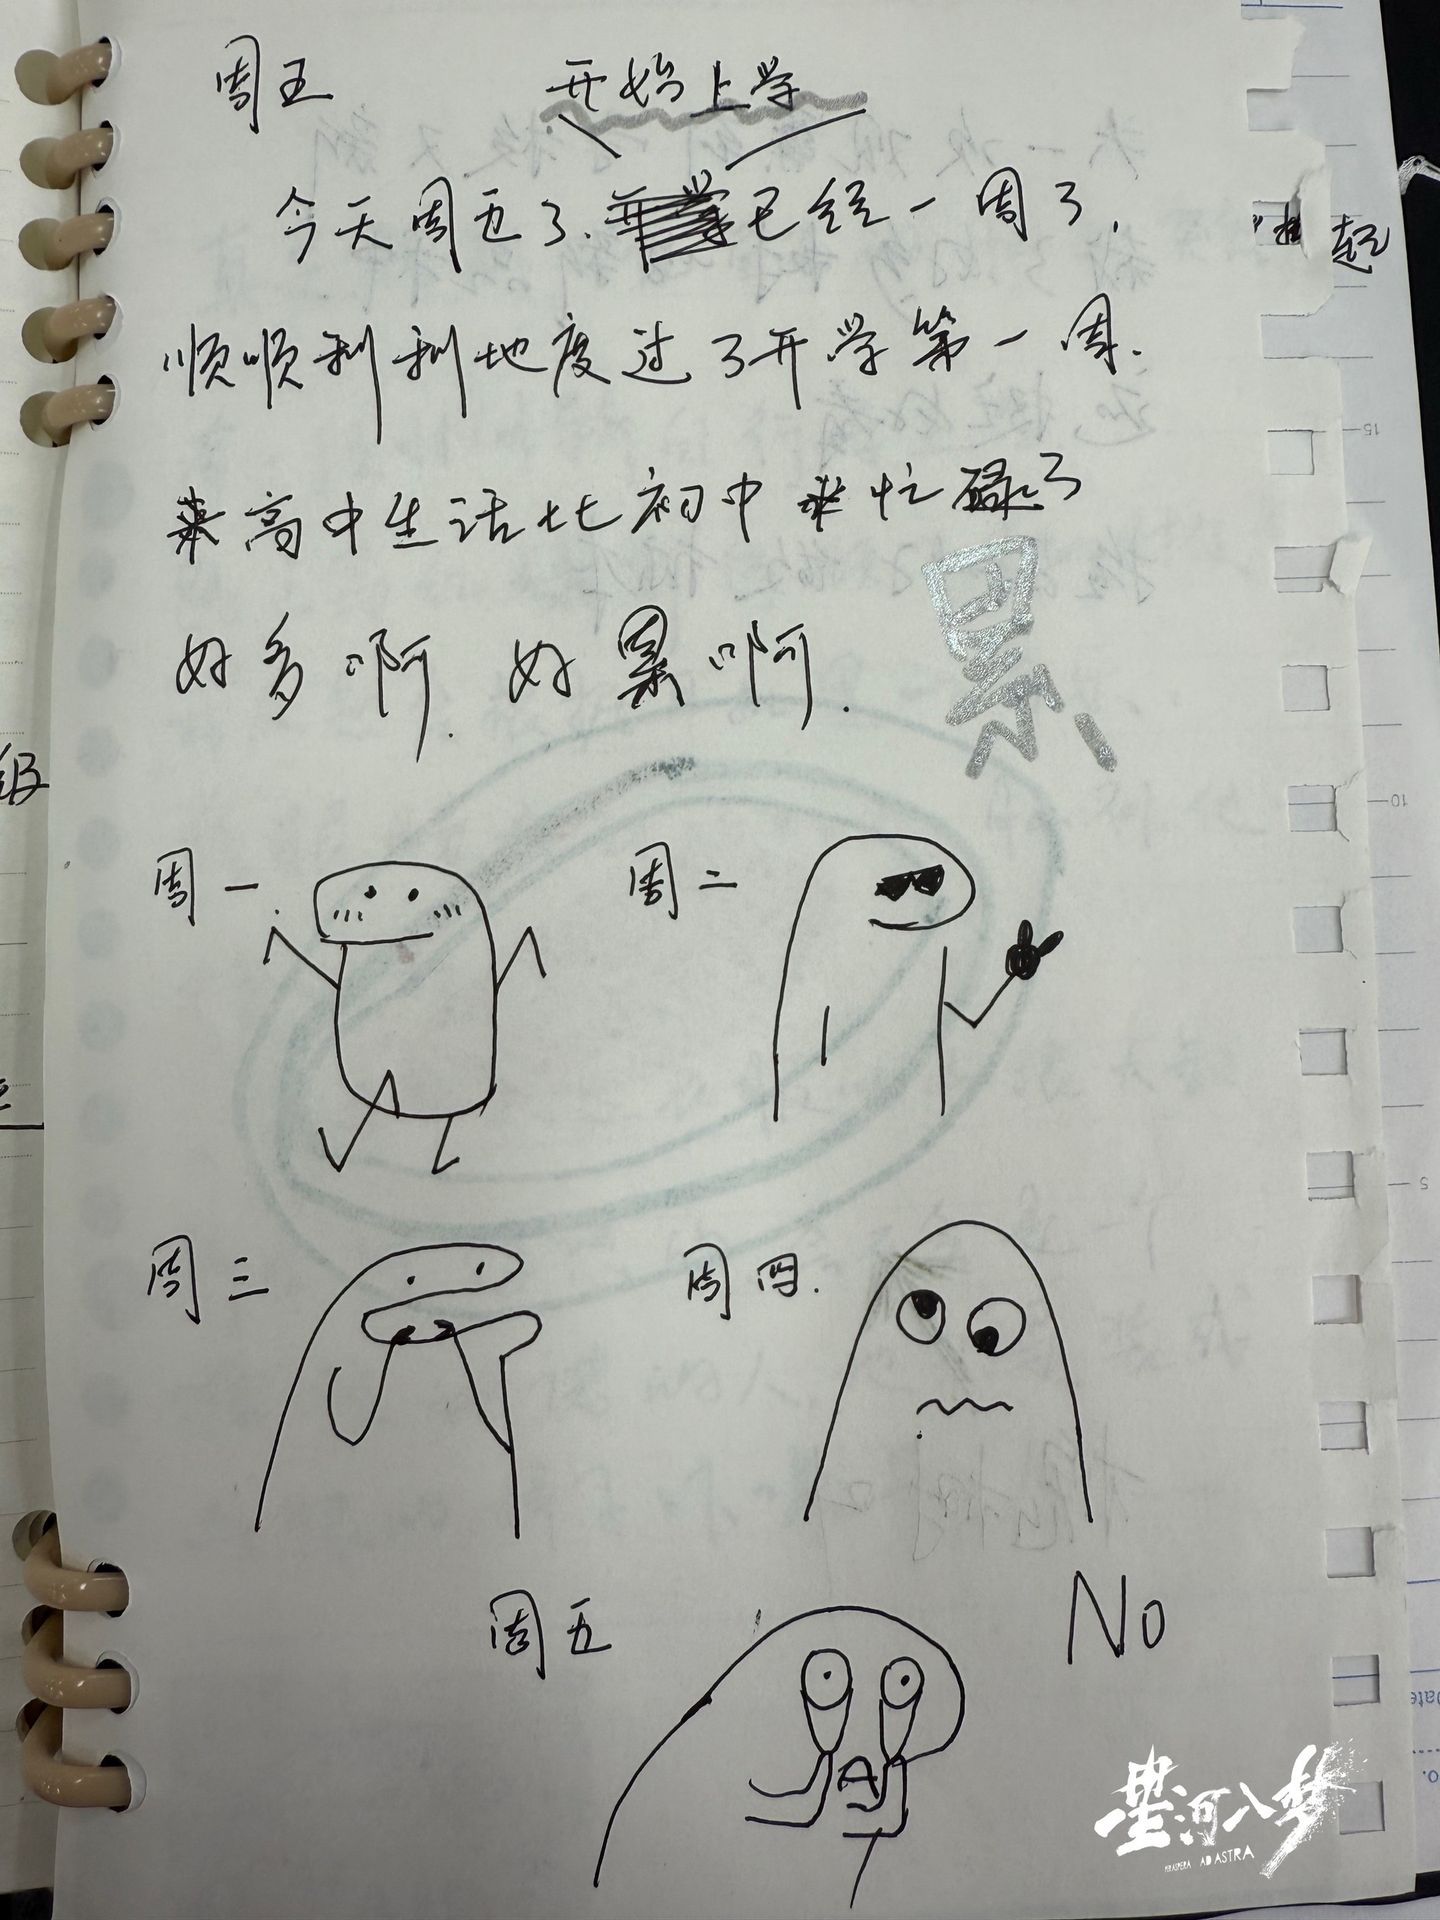 周五
开始上学
今天周五了.开学已经一周了,
顺顺利利地度过了开学第一周.
来高中生活比初中来忙碌了
好多啊.好累啊.
累
周一.
周二
周三
周四.
周五
No
起
级
15
10
5
Date
No.
星河入梦
PER ASPERA AD ASTRA